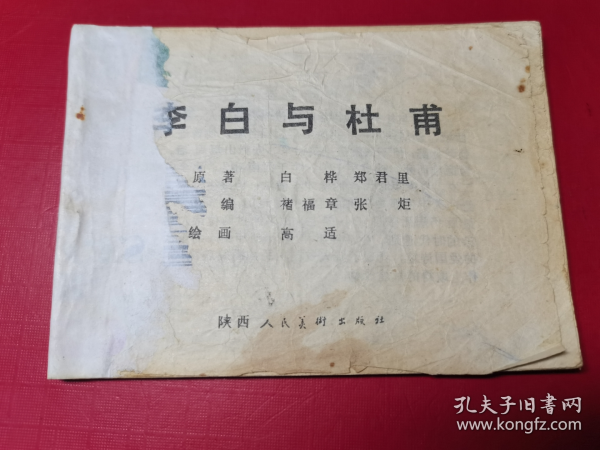 李白与杜甫
原著 白桦 郑君里
编 褚福章 张炬
绘画 高适
陕西人民美术出版社
孔夫子旧书网
www.kongfz.com